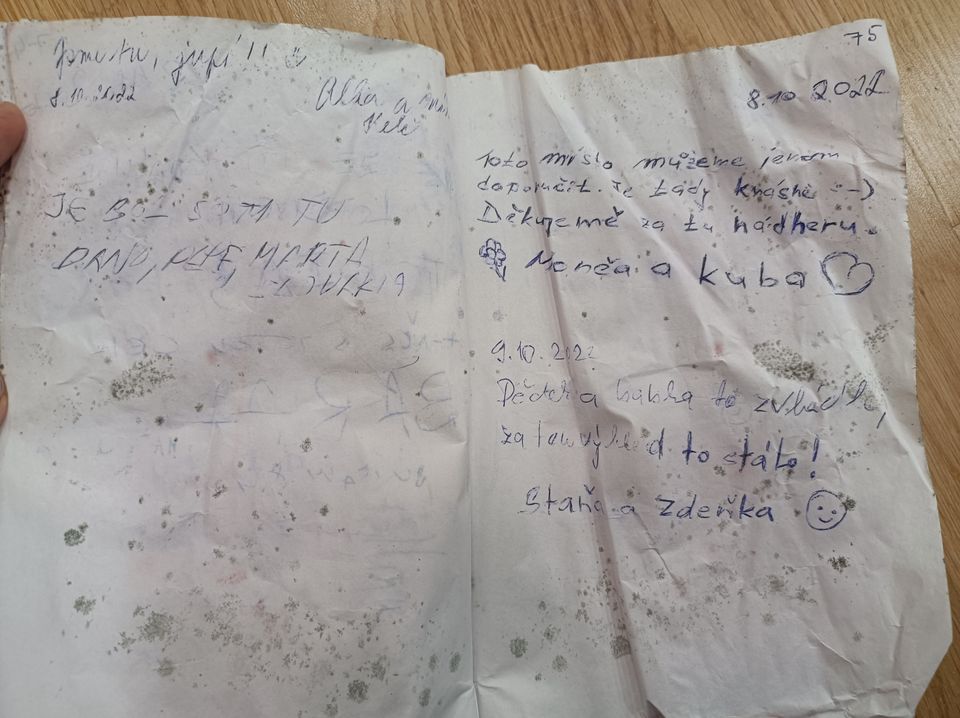 Jsme tu, jupí!! :)
8.10.2022
a
JE
SOM TU
MARTA
75
8.10 2022
Toto místo můžeme jenom
doporučit. Je tády krásně :-)
Děkujemě za tu nádheru.
Monča a kuba
9.10.2022
Dědek a babka to zvládli,
za ten výhled to stálo!
Staňa a Zdeňka